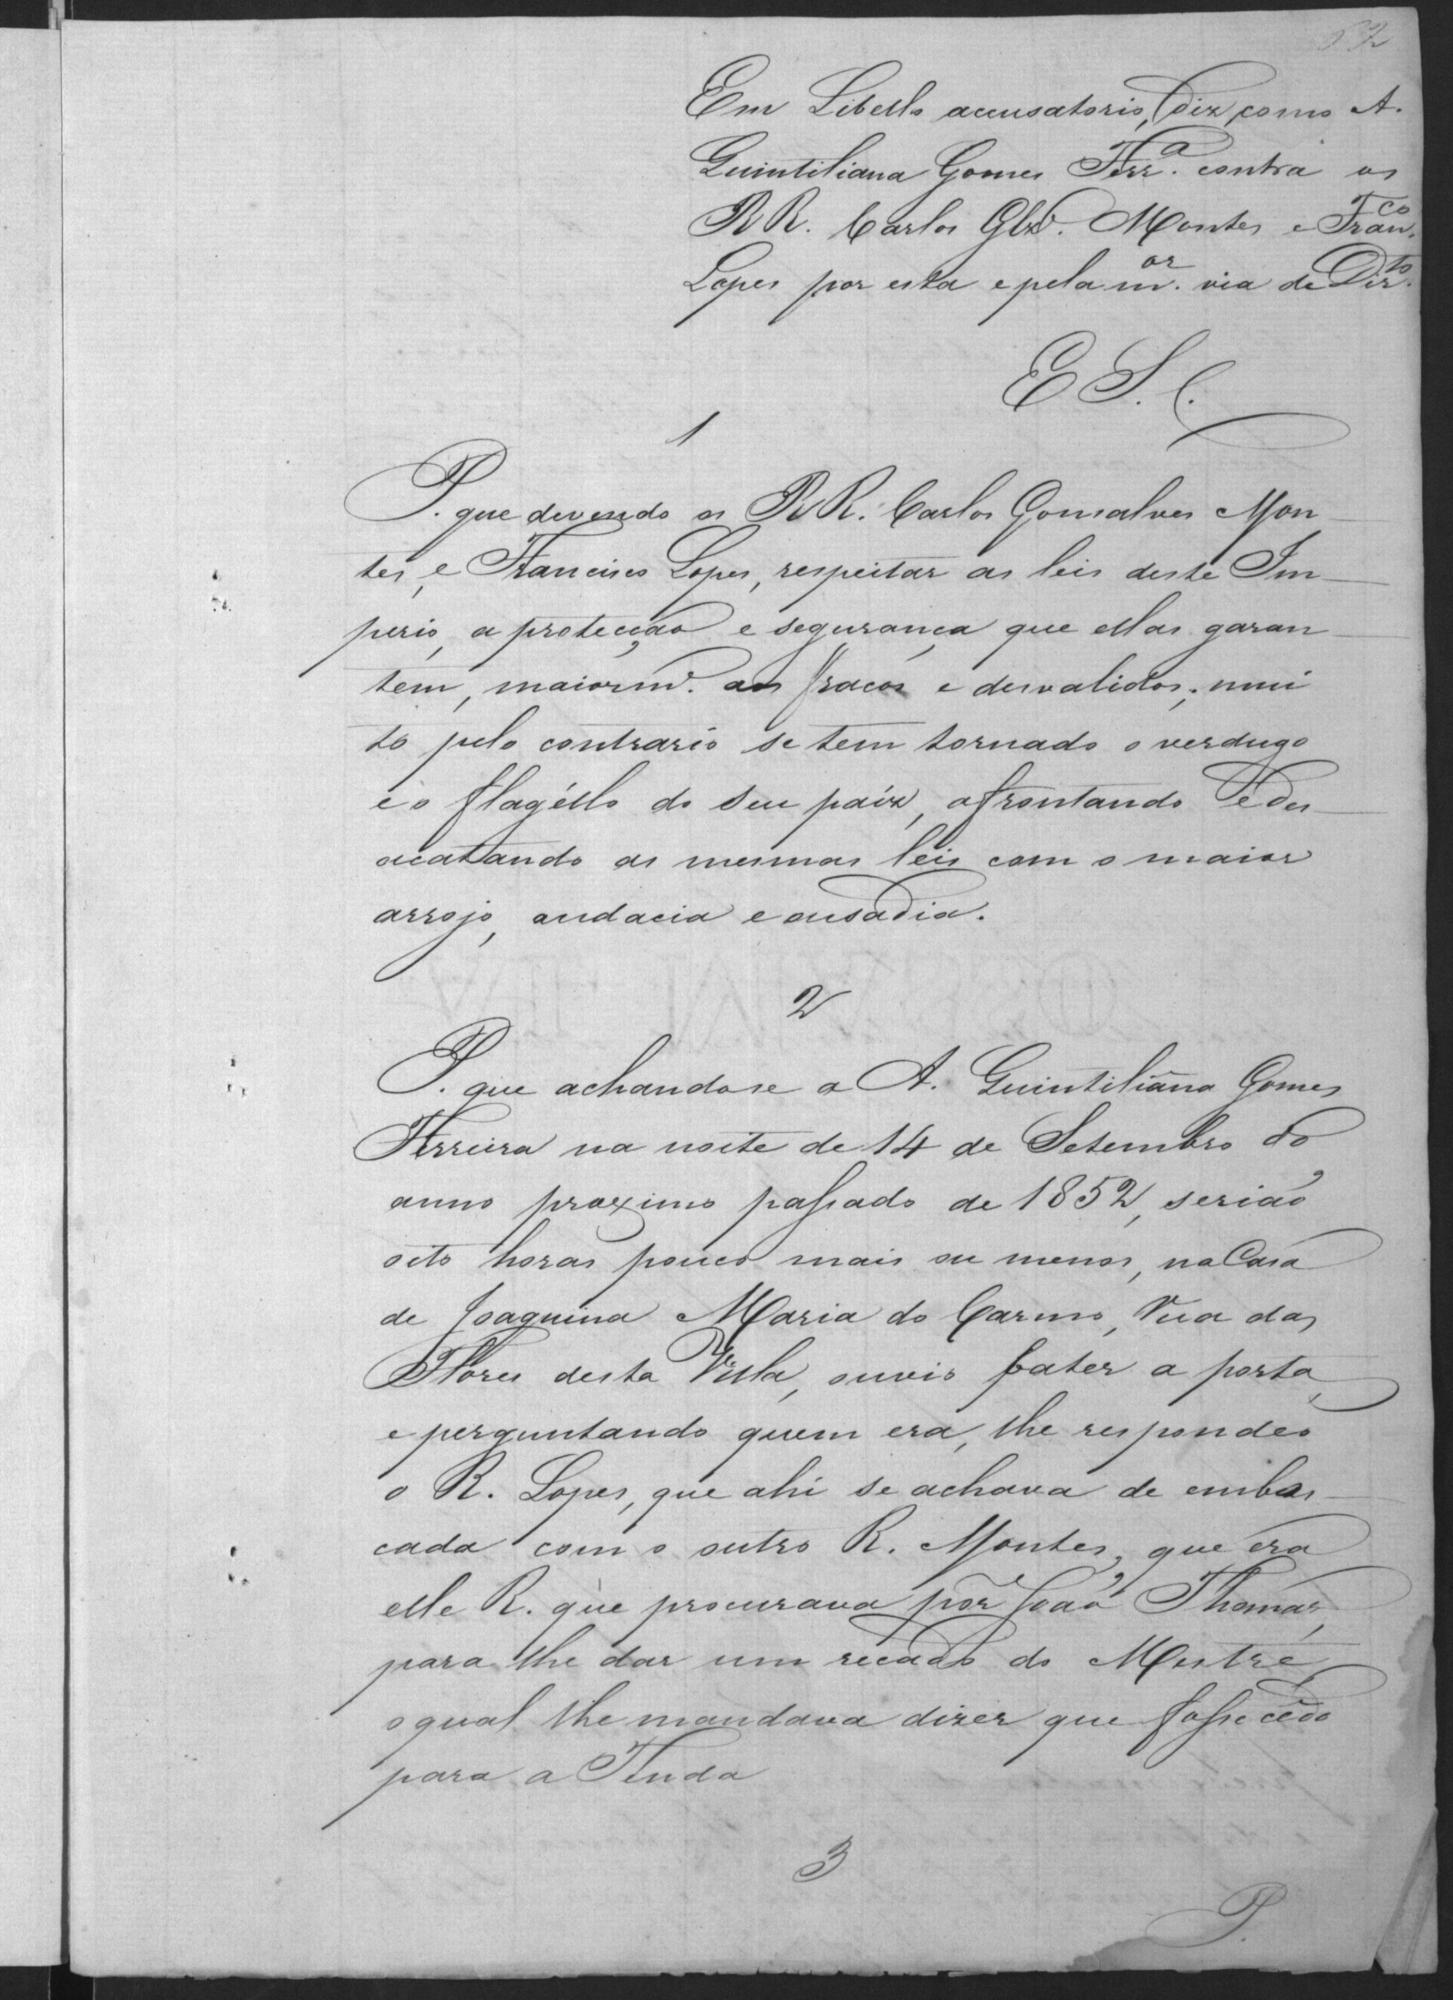 62
Em Libello accusatorio, diz, como A.
Quintiliana Gomes Ferr.ª contra os
RR. Carlos Glz'. Montes e Fran.co
Lopes por esta e pela m.or via de Dir.to
E S. C.
1
P. que devendo os RR. Carlos Gonsalves Mon
tes, e Francisco Lopes, respeitar as leis deste Im
perio, a protecção e segurança que ellas garan
tem, maiorm.e aos fracos e desvalidos; mui
to pelo contrario se tem tornado o verdugo
e o flagéllo do seu paíz, afrontando e des
acatando as mesmas leis com o maior
arrojo, audacia e ousadia.
2
P. que achandose a A. Quintiliana Gomes
Ferreira na noite de 14 de Setembro do
anno proximo passado de 1852, serião
oito horas pouco mais ou menos, na Casa
de Joaquina Maria do Carmo, Rua das
Flores desta Villa, ouvio bater a porta,
e perguntando quem era, lhe respondeo
o R. Lopes, que ahi se achava de embos
cada com o outro R. Montes, que era
elle R. que procurava por João Thomás,
para lhe dar um recado do Mestre,
o qual lhe mandava dizer que fosse cedo
para a Tenda
3
P.